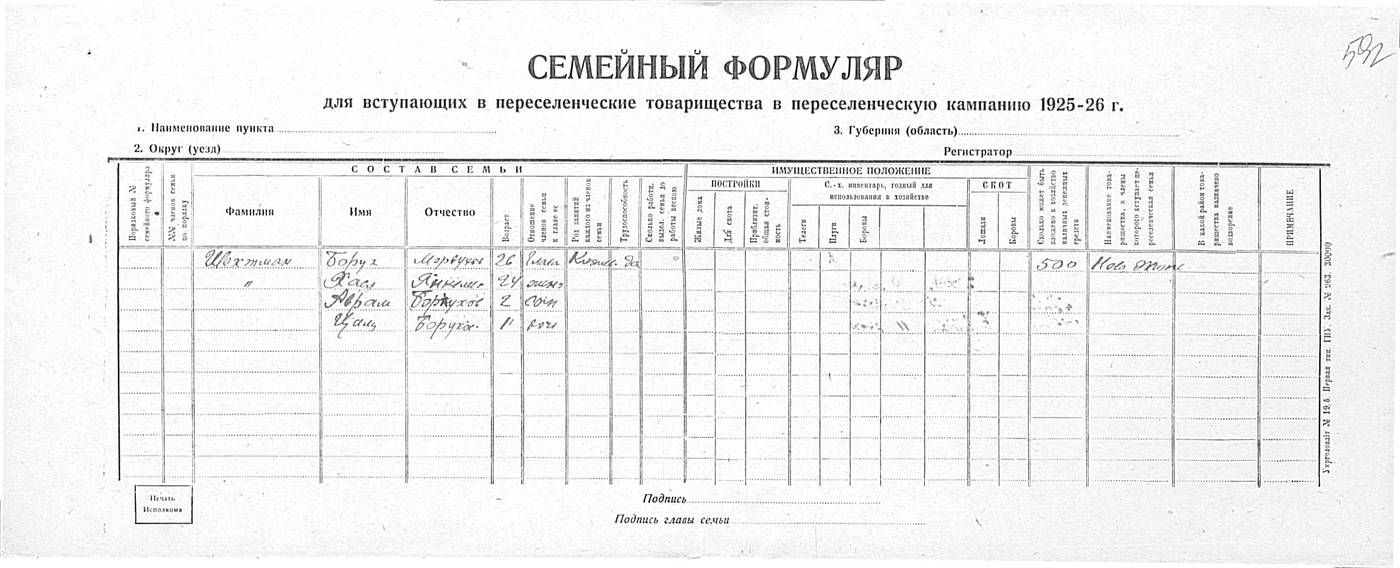 592
СЕМЕЙНЫЙ ФОРМУЛЯР
для вступающих в переселенческие товарищества в переселенческую кампанию 1925-26 г.
1. Наименование пункта
3. Губерния (область)
2. Округ (уезд)
Регистратор
Порядковый № семейного формуляра
№№ членов семьи по порядку
СОСТАВ СЕМЬИ
Фамилия
Имя
Отчество
Возраст
Отношение членов семьи к главе ее
Род занятий каждого из членов семьи
Трудоспособность
Сколько работн. выдел. семья до работы весною
ИМУЩЕСТВЕННОЕ ПОЛОЖЕНИЕ
ПОСТРОЙКИ
Жилые дома
Для скота
Приблизит. общая стоимость
С.-х. инвентарь, годный для использования в хозяйстве
Телеги
Плуги
Бороны
СКОТ
Лошади
Коровы
Сколько может быть вложено в хозяйство наличных денежных средств
Наименование товарищества, в члены которого вступает переселенческая семья
В какой район товарищества назначено водворение
ПРИМЕЧАНИЕ
Шехтман Борух 26 да 500 Ново
" Хася 24
Аврам Борухов 2 сын
11
Печать
Исполкома
Подпись
Подпись главы семьи
Укрголовліт № 19,6. Первая тип. ГИУ. Зак. № 263. 30000